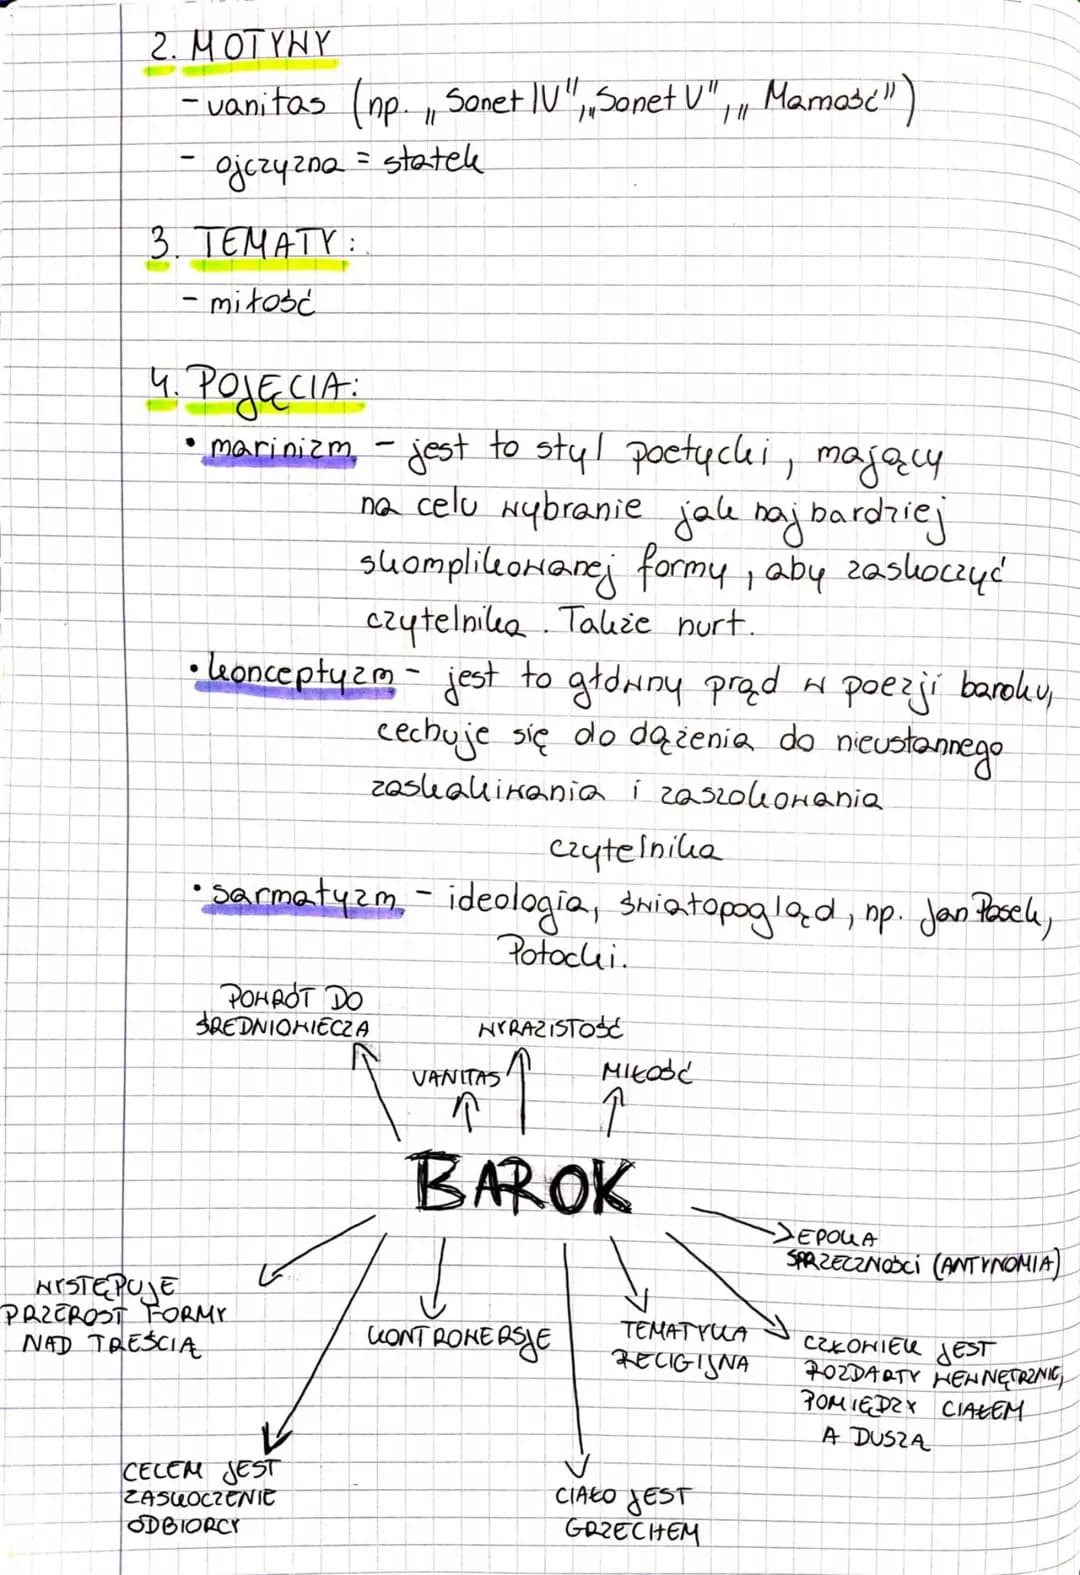 2. MOTYWY
- vanitas (np. „Sonet IV", „Sonet V", „Marność")
- ojczyzna = statek
3. TEMATY:
- miłość
4. POJĘCIA:
• marinizm - jest to styl poetycki, mający
na celu wybranie jak najbardziej
skomplikowanej formy, aby zaskoczyć
czytelnika. Także nurt.
• konceptyzm - jest to główny prąd w poezji baroku,
cechuje się do dążenia do nieustannego
zaskakiwania i zaszokowania
czytelnika
• sarmatyzm - ideologia, światopogląd, np. Jan Pasek,
Potocki.
POWRÓT DO
ŚREDNIOWIECZA
WYRAZISTOŚĆ
VANITAS
MIŁOŚĆ
BAROK
EPOKA
SPRZECZNOŚCI (ANTYNOMIA)
WYSTĘPUJE
PRZEROST FORMY
NAD TREŚCIĄ
KONTROWERSJE
TEMATYKA
RELIGIJNA
CZŁOWIEK JEST
ROZDARTY WEWNĘTRZNIE,
POMIĘDZY CIAŁEM
A DUSZĄ
CELEM JEST
ZASKOCZENIE
ODBIORCY
CIAŁO JEST
GRZECHEM